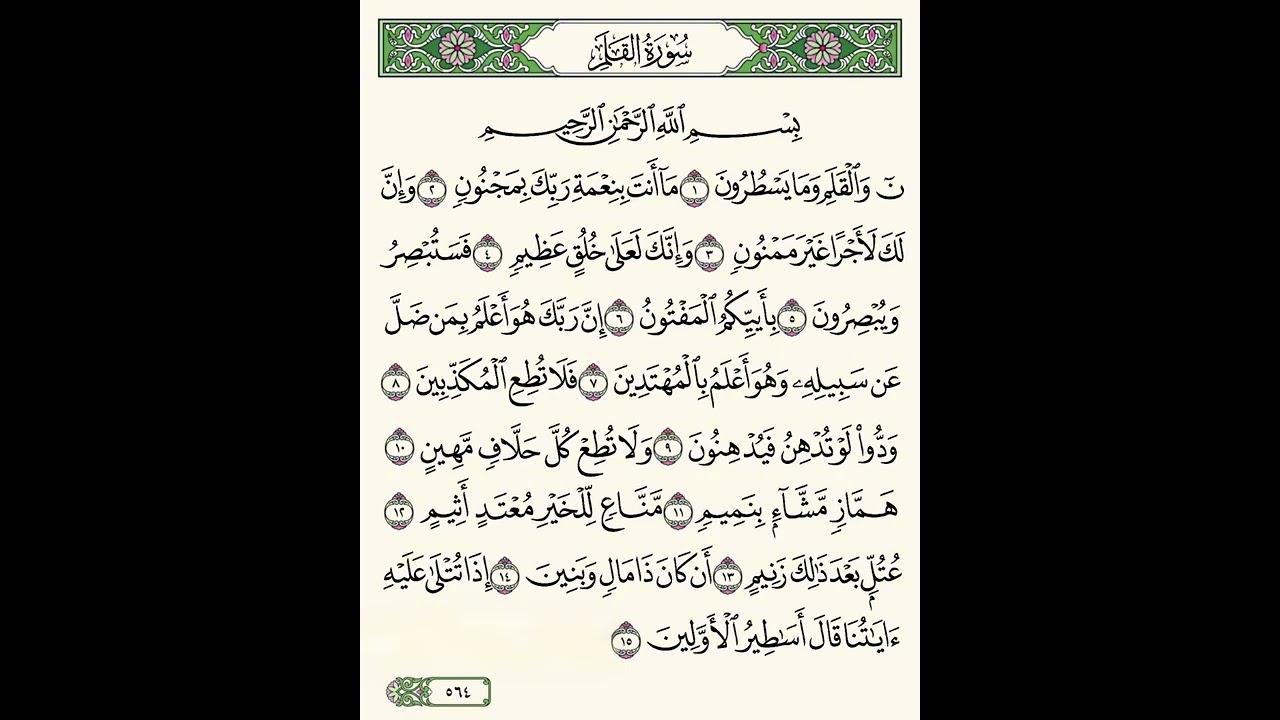 سُورَةُ القَلَمِ
بِسْمِ ٱللَّهِ ٱلرَّحْمَٰنِ ٱلرَّحِيمِ
نٓ وَٱلْقَلَمِ وَمَا يَسْطُرُونَ ١ مَآ أَنتَ بِنِعْمَةِ رَبِّكَ بِمَجْنُونٍ ٢ وَإِنَّ
لَكَ لَأَجْرًا غَيْرَ مَمْنُونٍ ٣ وَإِنَّكَ لَعَلَىٰ خُلُقٍ عَظِيمٍ ٤ فَسَتُبْصِرُ
وَيُبْصِرُونَ ٥ بِأَييِّكُمُ ٱلْمَفْتُونُ ٦ إِنَّ رَبَّكَ هُوَ أَعْلَمُ بِمَن ضَلَّ
عَن سَبِيلِهِۦ وَهُوَ أَعْلَمُ بِٱلْمُهْتَدِينَ ٧ فَلَا تُطِعِ ٱلْمُكَذِّبِينَ ٨
وَدُّوا۟ لَوْ تُدْهِنُ فَيُدْهِنُونَ ٩ وَلَا تُطِعْ كُلَّ حَلَّافٍ مَّهِينٍ ١٠
هَمَّازٍ مَّشَّآءٍۭ بِنَمِيمٍ ١١ مَّنَّاعٍ لِّلْخَيْرِ مُعْتَدٍ أَثِيمٍ ١٢
عُتُلٍّۭ بَعْدَ ذَٰلِكَ زَنِيمٍ ١٣ أَن كَانَ ذَا مَالٍ وَبَنِينَ ١٤ إِذَا تُتْلَىٰ عَلَيْهِ
ءَايَٰتُنَا قَالَ أَسَٰطِيرُ ٱلْأَوَّلِينَ ١٥
٥٦٤